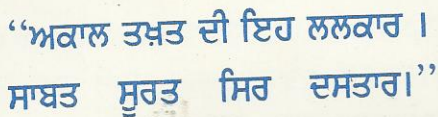 ‘‘ਅਕਾਲ ਤਖ਼ਤ ਦੀ ਇਹ ਲਲਕਾਰ ।
ਸਾਬਤ ਸੂਰਤ ਸਿਰ ਦਸਤਾਰ।’’